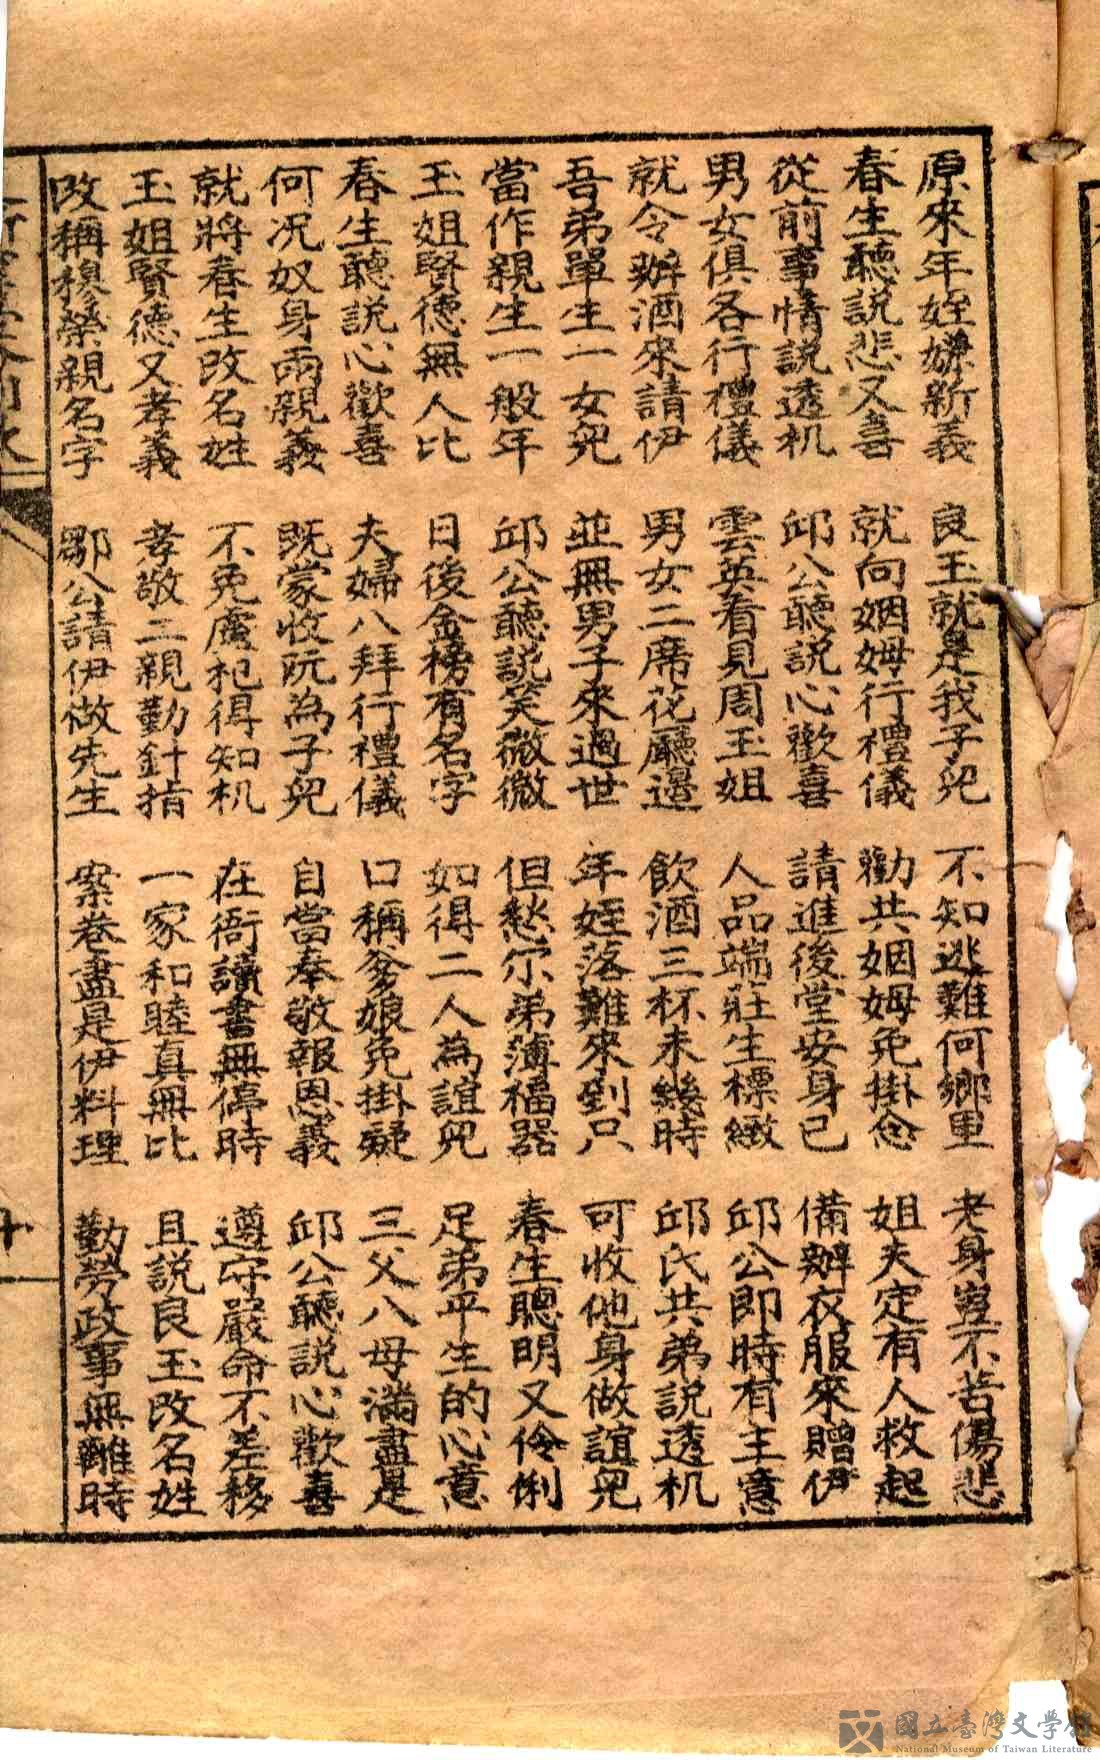 原來年姪嬸新義　良玉就是我子兒　不知逃難何鄉里　老身豈不苦傷悲
春生聽説悲又喜　就向姻姆行禮儀　勸共姻姆免掛念　姐夫定有人救起
從前事情説透机　邱公聽説心歡喜　請進後堂安身已　備辦衣服來贈伊
男女俱各行禮儀　雲英看見周玉姐　人品端莊生標緻　邱公即時有主意
就令辦酒來請伊　男女二席花廳邊　飲酒三杯未幾時　邱氏共弟説透机
吾弟單生一女兒　並無男子來過世　年姪落難來到只　可收他身做誼兒
當作親生一般年　邱公聽説笑微微　但愁尔弟薄福器　春生聰明又伶俐
玉姐賢德無人比　日後金榜有名字　如得二人為誼兒　足弟平生的心意
春生聽説心歡喜　夫婦八拜行禮儀　口稱爹娘免掛疑　三父八母滿盡是
何况奴身兩親義　既蒙收阮為子兒　自當奉敬報恩義　邱公聽説心歡喜
就將春生改名姓　不免盧杞得知机　在衙讀書無停時　遵守嚴命不差移
玉姐賢德又孝義　孝敬二親勤針指　一家和睦真無比　且説良玉改名姓
改稱穆榮親名字　鄒公請伊做先生　案卷盡是伊料理　勤勞政事無離時
國立臺灣文學館
National Museum of Taiwan Literature